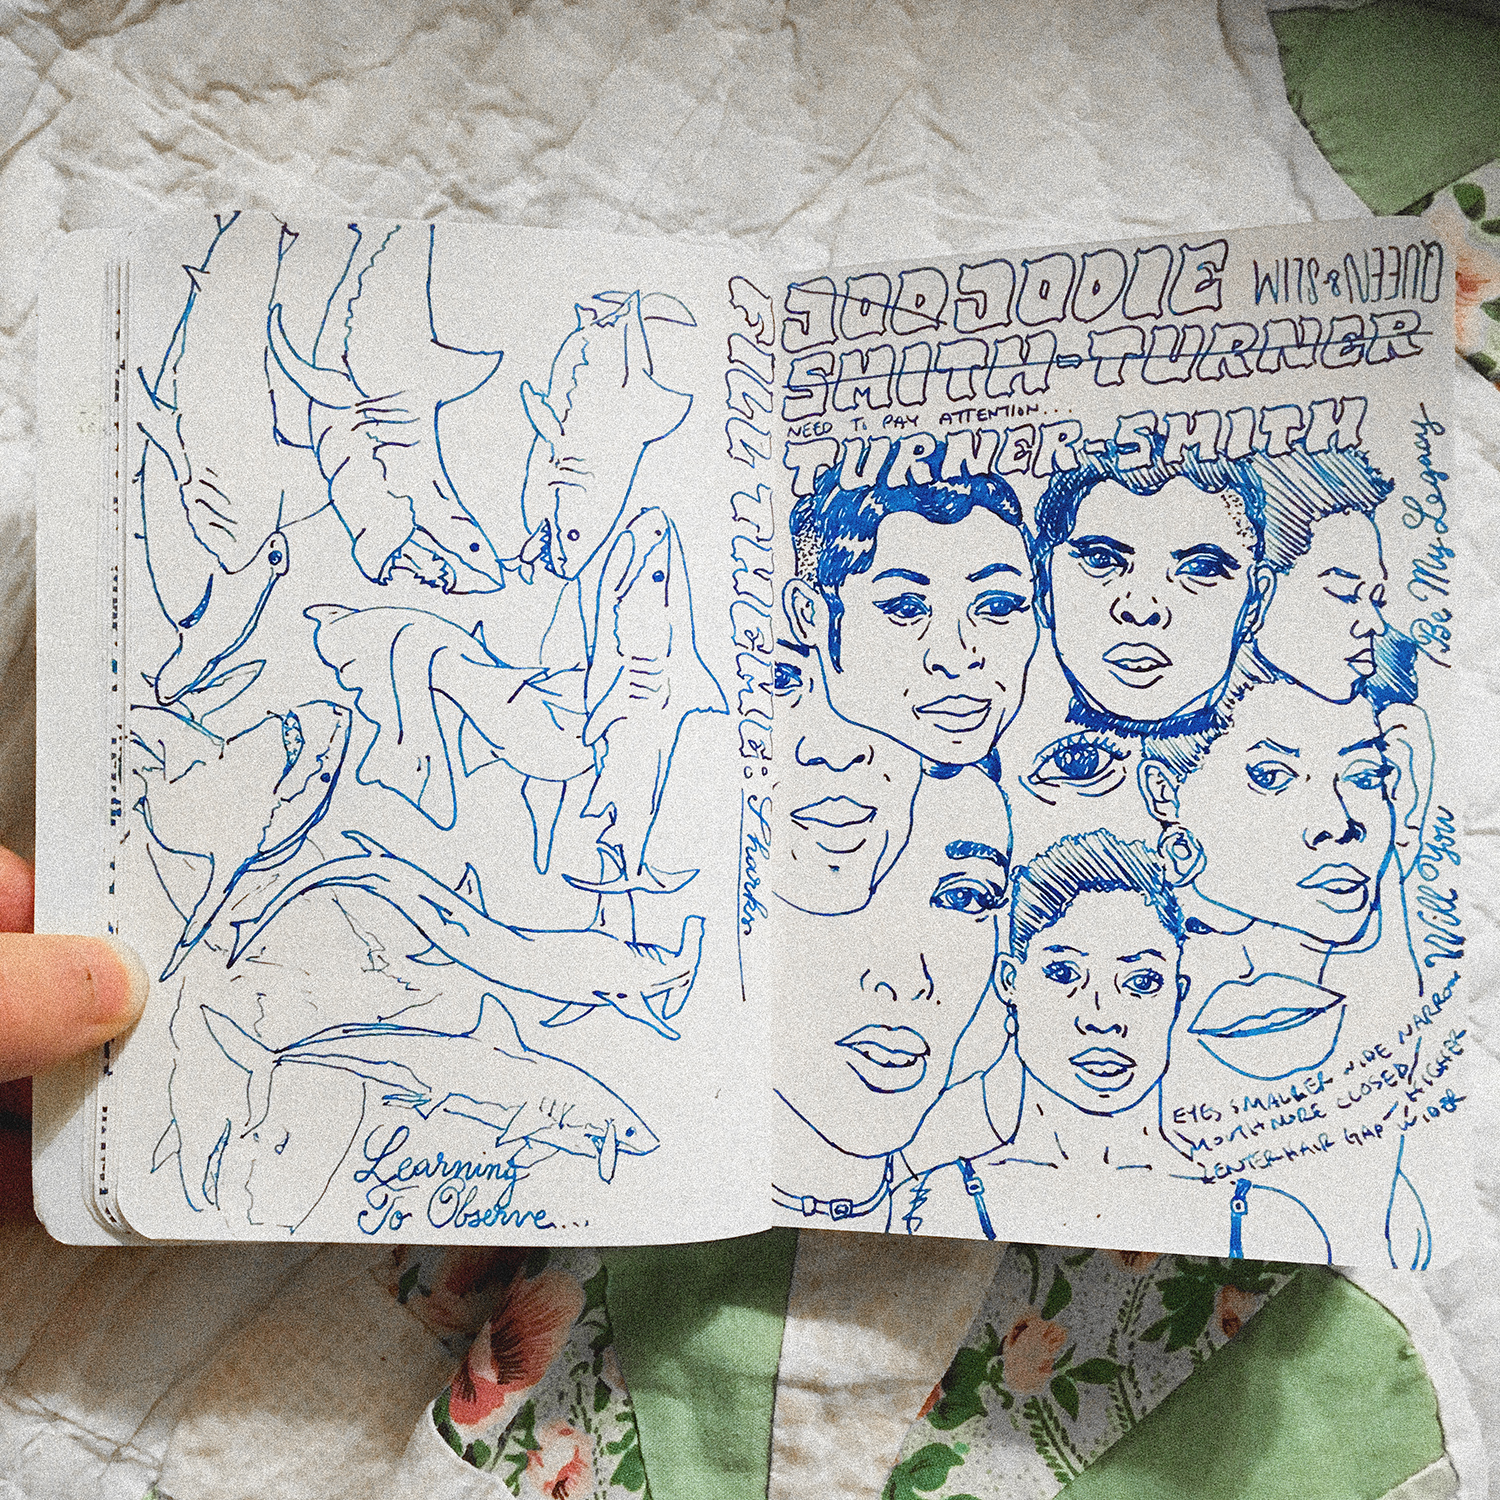 FULL THROTTLE: Sharks
Learning
To Observe....
JOD JODIE
QUEEN & SLIM
SMITH-TURNER
NEED TO PAY ATTENTION...
TURNER-SMITH
Will You Be My Legacy
EYES SMALLER WIDE NARROW
MOUTH MORE CLOSED - HIGHER
CENTER HAIR GAP WIDER